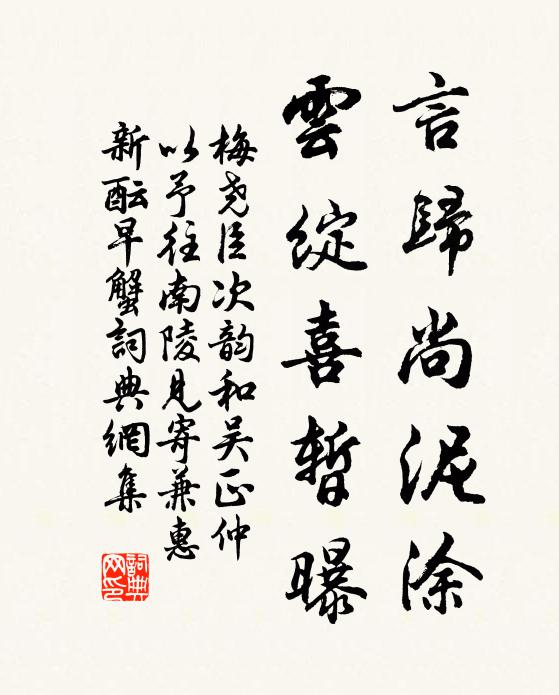 言歸尚泥涂
雲綻喜暫曝
梅尧臣次韵和吴正仲
以予往南陵見寄兼惠
新酝早蟹詞典網集
詞典網印